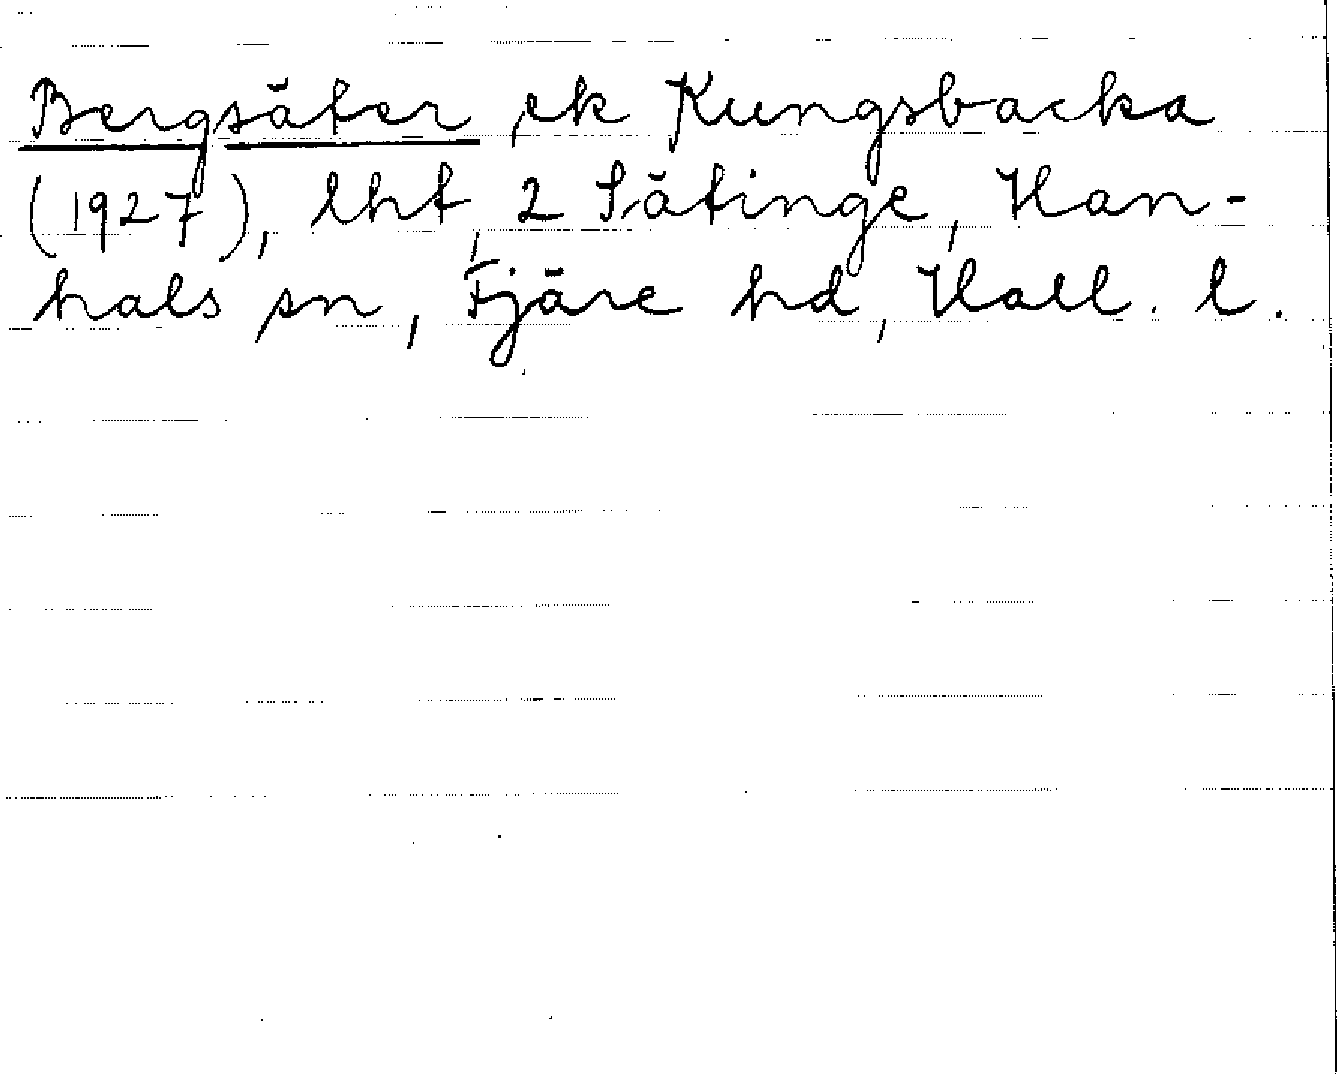 Bergsäter, ek Kungsbacka
(1927), lht, 2 Sätinge, Han-
hals sn, Fjäre hd, Hall. l.